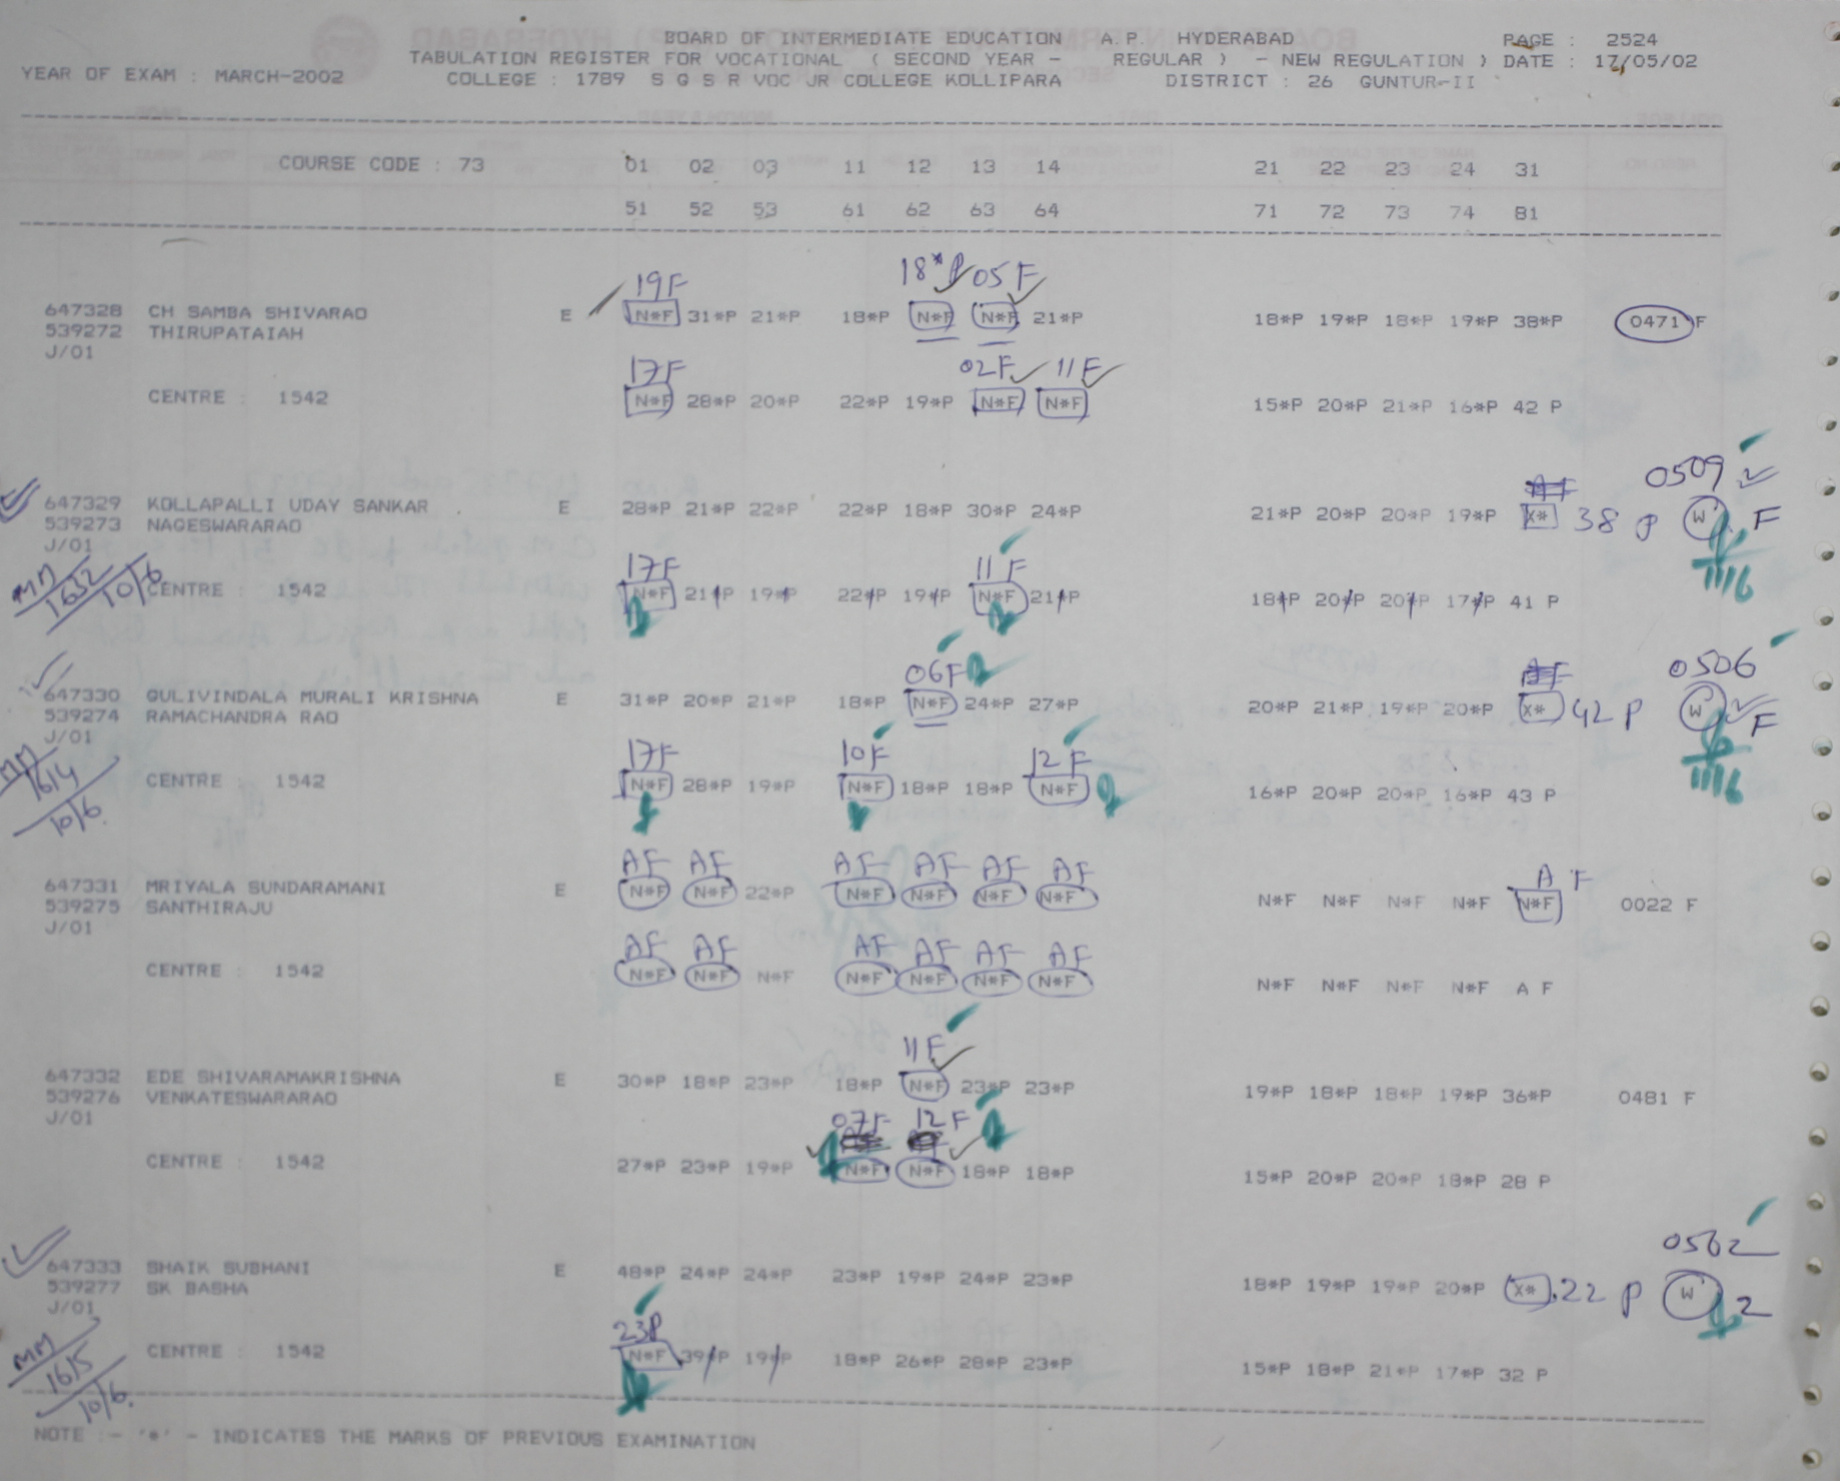 BOARD OF INTERMEDIATE EDUCATION A.P. HYDERABAD PAGE : 2524
TABULATION REGISTER FOR VOCATIONAL ( SECOND YEAR - REGULAR ) - NEW REGULATION ) DATE : 17/05/02
YEAR OF EXAM : MARCH-2002 COLLEGE : 1789 S G S R VOC JR COLLEGE KOLLIPARA DISTRICT : 26 GUNTUR-II
COURSE CODE : 73 01 02 03 11 12 13 14 21 22 23 24 31
51 52 53 61 62 63 64 71 72 73 74 81
19F 18*P 05F
647328 CH SAMBA SHIVARAO E N*F 31*P 21*P 18*P N*F N*F 21*P 18*P 19*P 18*P 19*P 38*P 0471 F
539272 THIRUPATAIAH
J/01
17F 02F 11F
CENTRE : 1542 N*F 28*P 20*P 22*P 19*P N*F N*F 15*P 20*P 21*P 16*P 42 P
0509
647329 KOLLAPALLI UDAY SANKAR E 28*P 21*P 22*P 22*P 18*P 30*P 24*P 21*P 20*P 20*P 19*P X* 38 P W F
539273 NAGESWARARAO
J/01
11/6
17F 11F
MM 1632 10/6 CENTRE : 1542 N*F 21*P 19*P 22*P 19*P N*F 21*P 18*P 20*P 20*P 17*P 41 P
06F 0506
647330 GULIVINDALA MURALI KRISHNA E 31*P 20*P 21*P 18*P N*F 24*P 27*P 20*P 21*P 19*P 20*P X* 42 P W F
539274 RAMACHANDRA RAO
J/01
11/6
17F 10F 12F
MM 1614 10/6. CENTRE : 1542 N*F 28*P 19*P N*F 18*P 18*P N*F 16*P 20*P 20*P 16*P 43 P
AF AF AF AF AF AF A F
647331 MRIYALA SUNDARAMANI E N*F N*F 22*P N*F N*F N*F N*F N*F N*F N*F N*F N*F 0022 F
539275 SANTHIRAJU
J/01
AF AF AF AF AF AF
CENTRE : 1542 N*F N*F N*F N*F N*F N*F N*F N*F N*F N*F N*F A F
11F
647332 EDE SHIVARAMAKRISHNA E 30*P 18*P 23*P 18*P N*F 23*P 23*P 19*P 18*P 18*P 19*P 36*P 0481 F
539276 VENKATESWARARAO
J/01
07F 12F
CENTRE : 1542 27*P 23*P 19*P N*F N*F 18*P 18*P 15*P 20*P 20*P 18*P 28 P
0562
647333 SHAIK SUBHANI E 48*P 24*P 24*P 23*P 19*P 24*P 23*P 18*P 19*P 19*P 20*P X* 22 P W 2
539277 SK BASHA
J/01
23P
MM 1615 10/6. CENTRE : 1542 N*F 39*P 19*P 18*P 26*P 28*P 23*P 15*P 18*P 21*P 17*P 32 P
NOTE :- '*' - INDICATES THE MARKS OF PREVIOUS EXAMINATION